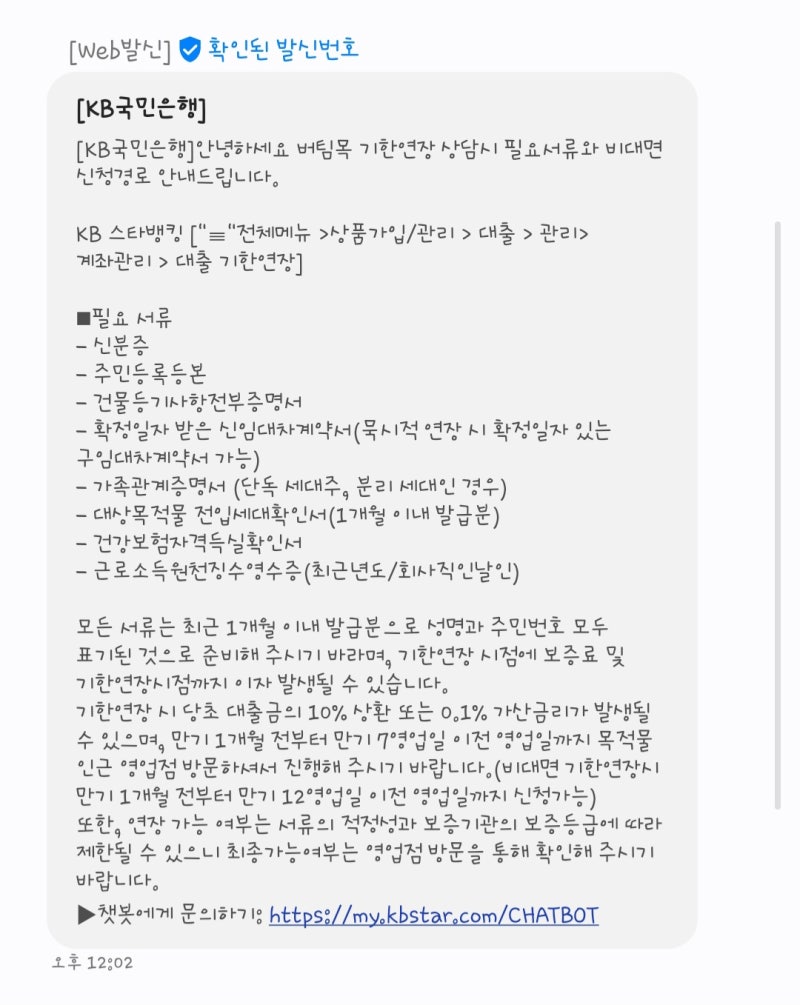 [Web발신] 확인된 발신번호
[KB국민은행]
[KB국민은행]안녕하세요 버팀목 기한연장 상담시 필요서류와 비대면
신청경로 안내드립니다.
KB 스타뱅킹 ["≡"전체메뉴 >상품가입/관리 > 대출 > 관리>
계좌관리 > 대출 기한연장]
■필요 서류
- 신분증
- 주민등록등본
- 건물등기사항전부증명서
- 확정일자 받은 신임대차계약서(묵시적 연장 시 확정일자 있는
구임대차계약서 가능)
- 가족관계증명서 (단독 세대주, 분리 세대인 경우)
- 대상목적물 전입세대확인서(1개월 이내 발급분)
- 건강보험자격득실확인서
- 근로소득원천징수영수증(최근년도/회사직인날인)
모든 서류는 최근 1개월 이내 발급분으로 성명과 주민번호 모두
표기된 것으로 준비해 주시기 바라며, 기한연장 시점에 보증료 및
기한연장시점까지 이자 발생될 수 있습니다.
기한연장 시 당초 대출금의 10% 상환 또는 0.1% 가산금리가 발생될
수 있으며, 만기 1개월 전부터 만기 7영업일 이전 영업일까지 목적물
인근 영업점 방문하셔서 진행해 주시기 바랍니다.(비대면 기한연장시
만기 1개월 전부터 만기 12영업일 이전 영업일까지 신청가능)
또한, 연장 가능 여부는 서류의 적정성과 보증기관의 보증등급에 따라
제한될 수 있으니 최종가능여부는 영업점 방문을 통해 확인해 주시기
바랍니다.
▶챗봇에게 문의하기: https://my.kbstar.com/CHATBOT
오후 12:02